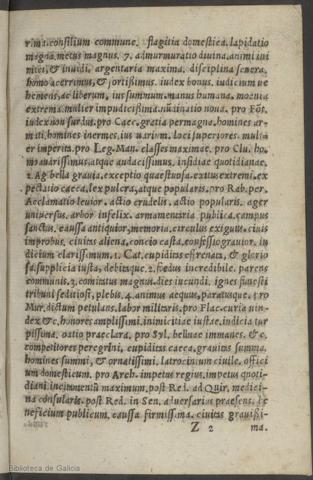 rima. consilium commune. flagitia domestica. lapidatio
magna. metus magnus. 7. admurmuratio diuina. animi ini
mici, & inuidi. argentaria maxima. disciplina seuera.
homo acerrimus, & fortißimus. iudex bonus. iudicium ue
hemens, ac liberum. ius summum. manus humana.
extrema. mulier impudicißima. noua. pro Fōt.
iudex non surdus. pro Caec. gratia permagna. homines ar
mati, homines inermes. ius uarium. loci superiores. muli
er imperita. pro Leg. Man. classes maximae. pro Clu. ho
mo auarissimus, atque audacissimus. insidiae quotidianae.
2. Ag. bella grauia. exceptio quaestuosa. exitus extremi. ex
pectatio caeca. lex pulcra, atque popularis. pro Rab. per.
Acclamatio leuior. actio crudelis. actio popularis. ager
uniuersus. arbor infelix. armamentaria publica. campus
sanctus. caussa antiquior, memoria. circulus exiguus. ciuis
improbus. ciuitas aliena. concio casta. confessio grauior. in
dicium clarissimum. 1. Cat. cupiditas effrenata, & glorio
sa. supplicia iusta, debitaque. 2. foedus incredibile. parens
communis. 3. comitatus magnus. dies iucundi. ignes funesti
tribuni seditiosi, plebis. 4. animus aequus, paratusque. pro
Mur. dictum petulans. labor militaris. pro Flac. curia uin
dex &c. honores amplissimi. inimicitiae iustae. indicia tur
pissima. oratio praeclara. pro Syl. belluae immanes, & c.
competitores peregrini. cupiditas caeca. grauitas summa.
homines summi, & ornatissimi. latrocinium ciuile. offici
um domesticum. pro Arch. impetus regius, impetus quoti
diani. incitamentū maximum. post Red. ad Quir. medici-
na consularis. post Red. in Sen. aduersarius praesens. be
neficium publicum. caussa firmissima. ciuitas grauißi-
Z 2 ma.
Biblioteca de Galicia